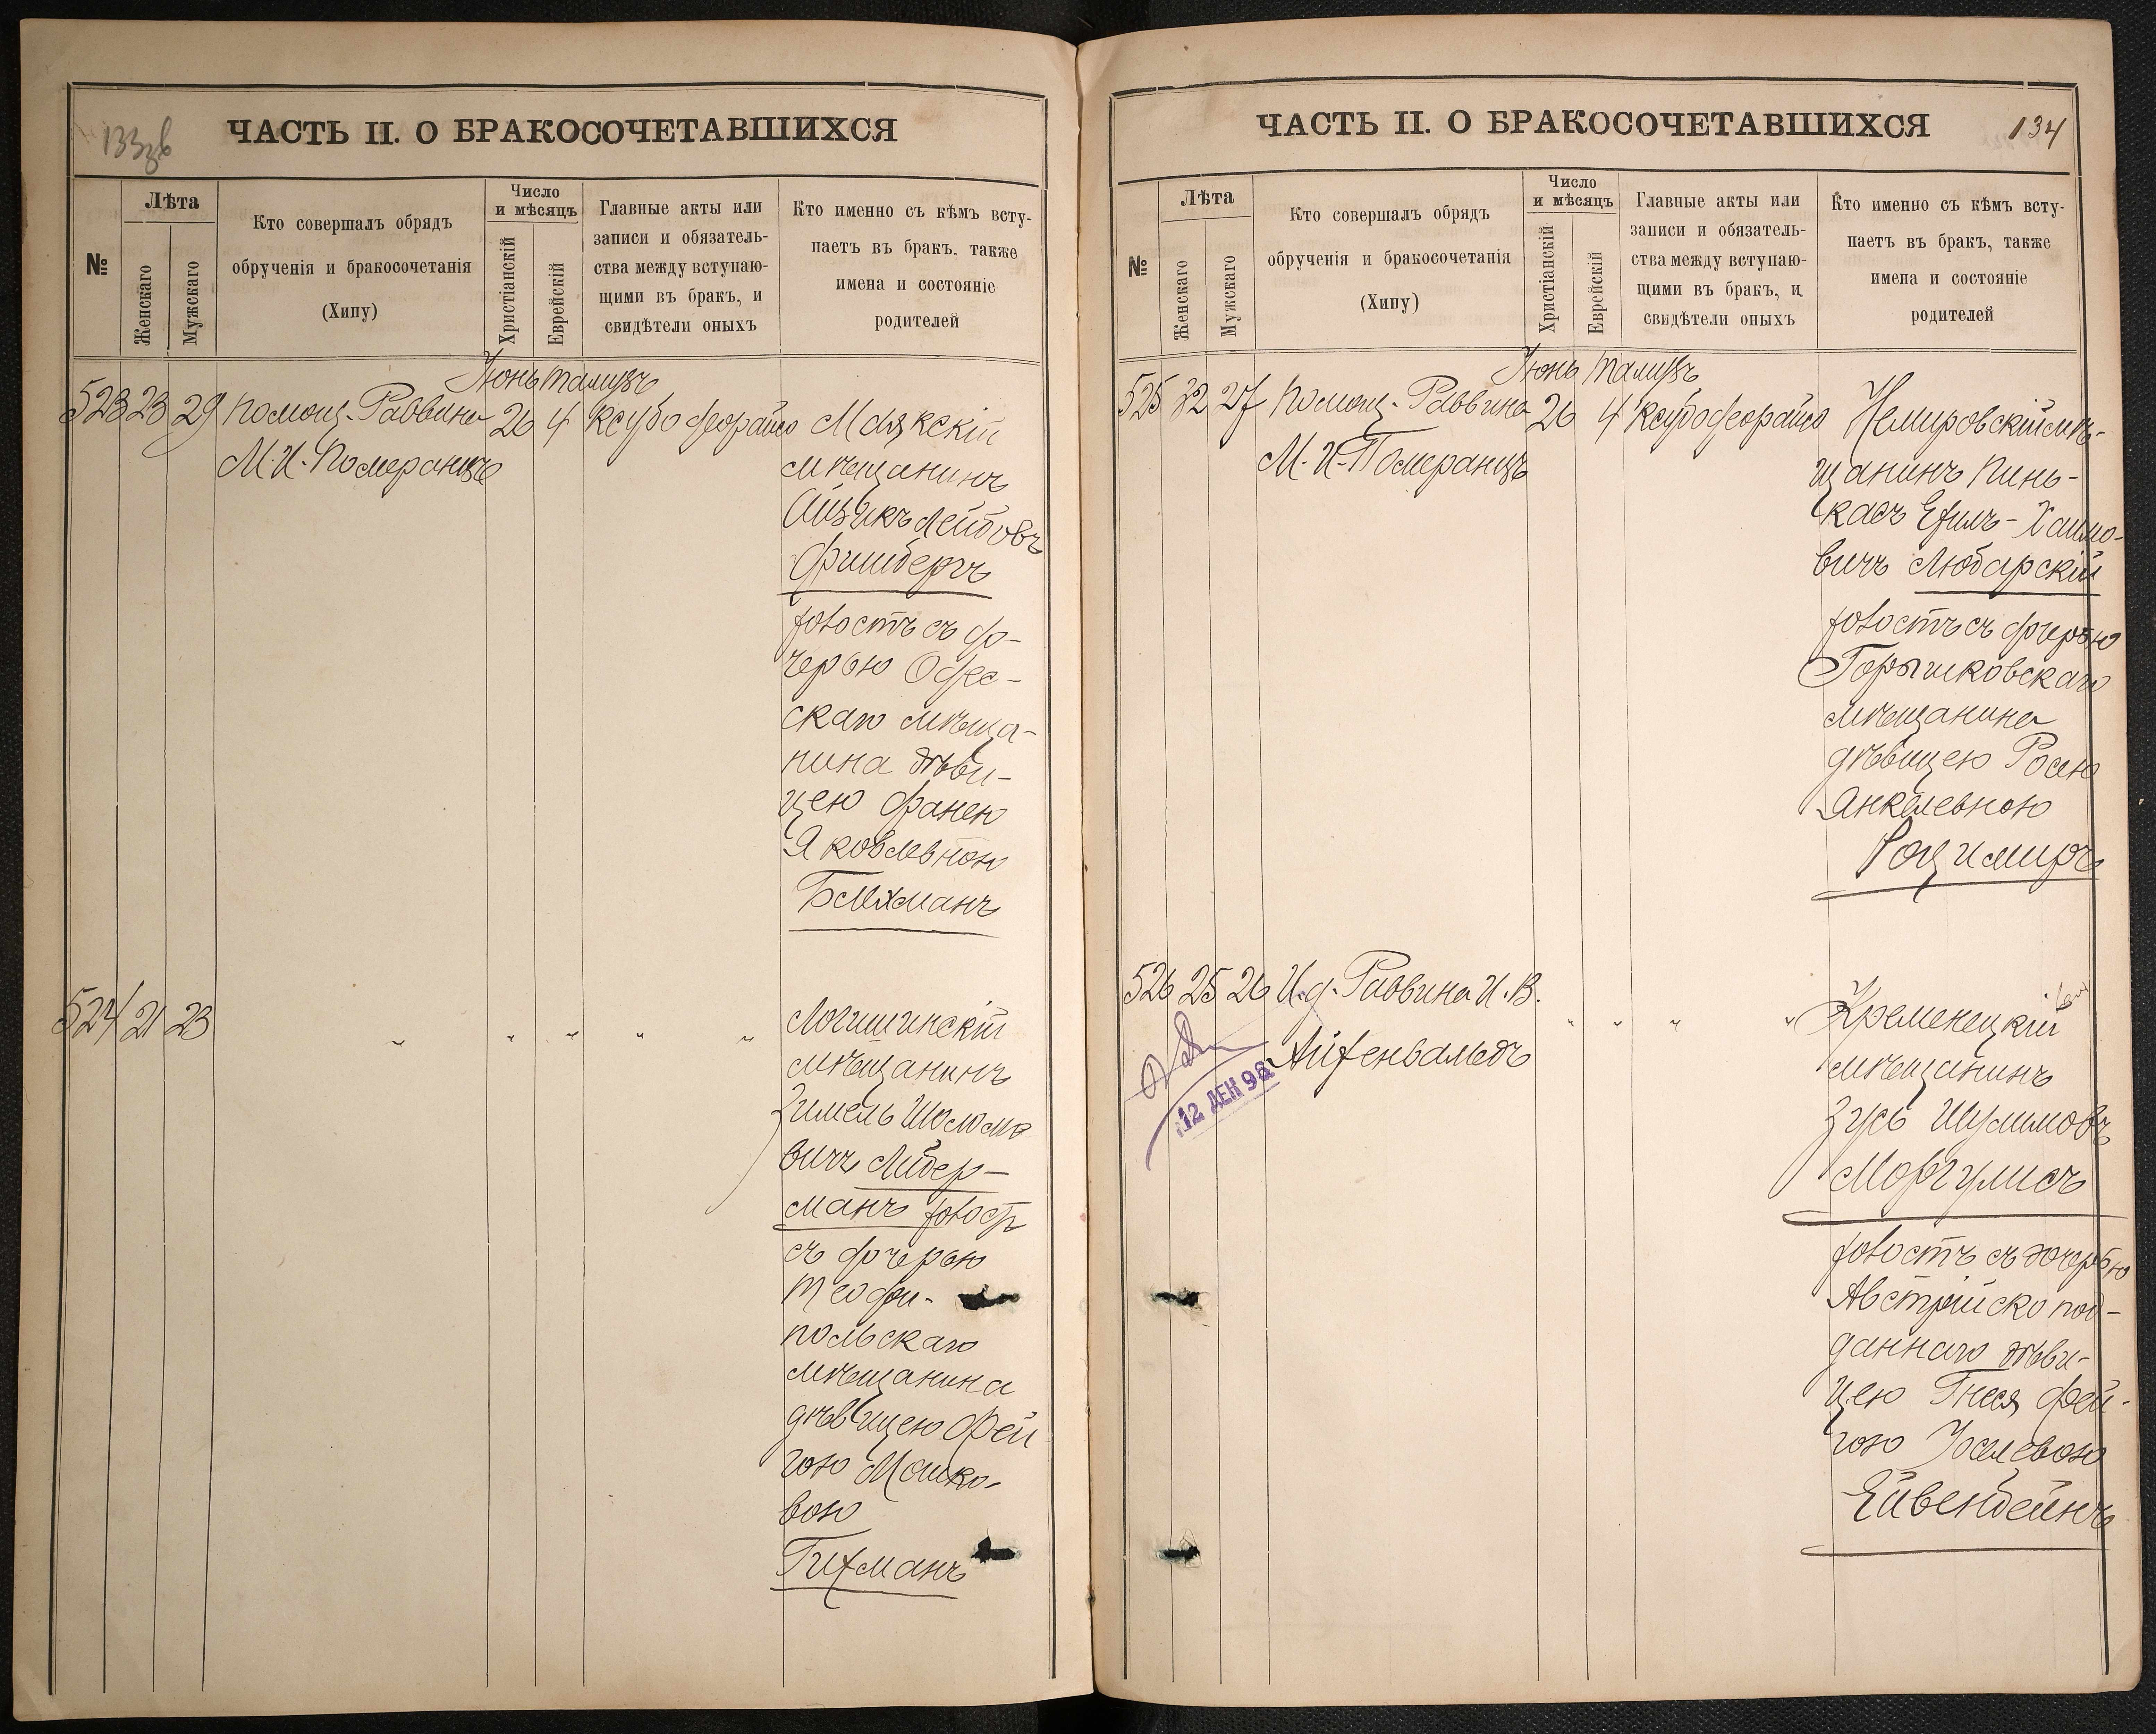 133об
ЧАСТЬ II. О БРАКОСОЧЕТАВШИХСЯ
№
Лѣта
Женскаго
Мужскаго
Кто совершалъ обрядъ
обрученія и бракосочетанія
(Хипу)
Число
и мѣсяцъ
Христіанскій
Еврейскій
Главные акты или
записи и обязатель-
ства между вступаю-
щими въ бракъ, и
свидѣтели оныхъ
Кто именно съ кѣмъ всту-
паетъ въ бракъ, также
имена и состояніе
родителей
Іюнь Тамузъ
523 23 29 Помощ. Раввина 26 4 Ксубо деорайсо Маякскій
М. И. Померанцъ
мѣщанинъ
Айзикъ Лейбовъ
Фишбергъ
холостъ съ до-
черью Одес-
скаго мѣща-
нина дѣви-
цею Фанею
Яковлевною
Бляхманъ
524 21 23 " " " " " Логишинскій
мѣщанинъ
Зимель Шоломо
вичъ Либер-
манъ холост
съ дочерью
Теофи-
польскаго
мѣщанина
дѣвицею Фей
гою Мошко-
вою
Гихманъ
ЧАСТЬ II. О БРАКОСОЧЕТАВШИХСЯ
134
№
Лѣта
Женскаго
Мужскаго
Кто совершалъ обрядъ
обрученія и бракосочетанія
(Хипу)
Число
и мѣсяцъ
Христіанскій
Еврейскій
Главные акты или
записи и обязатель-
ства между вступаю-
щими въ бракъ, и
свидѣтели оныхъ
Кто именно съ кѣмъ всту-
паетъ въ бракъ, также
имена и состояніе
родителей
Іюнь Тамузъ
525 32 27 Помощ. Раввина 26 4 Ксубо деорайсо Немировскій мѣ-
М. И. Померанцъ
щанинъ Пинь-
касъ Ехилъ-Хаимо-
вичъ Любарскій
холостъ съ дочерью
Горышковскаго
мѣщанина
дѣвицею Росею
Янкелевною
Роцимиръ
526 25 26 И. д. Раввина И. В. " " " " Кременецкій
Айхенвальдъ
12 ДЕК 98
мѣщанинъ
Зусь Шулимовъ
Моргулисъ
холостъ съ дочерью
Австрійско под-
даннаго дѣви-
цею Гнеся Фей-
гою Іоселевою
Ейвенбейнъ